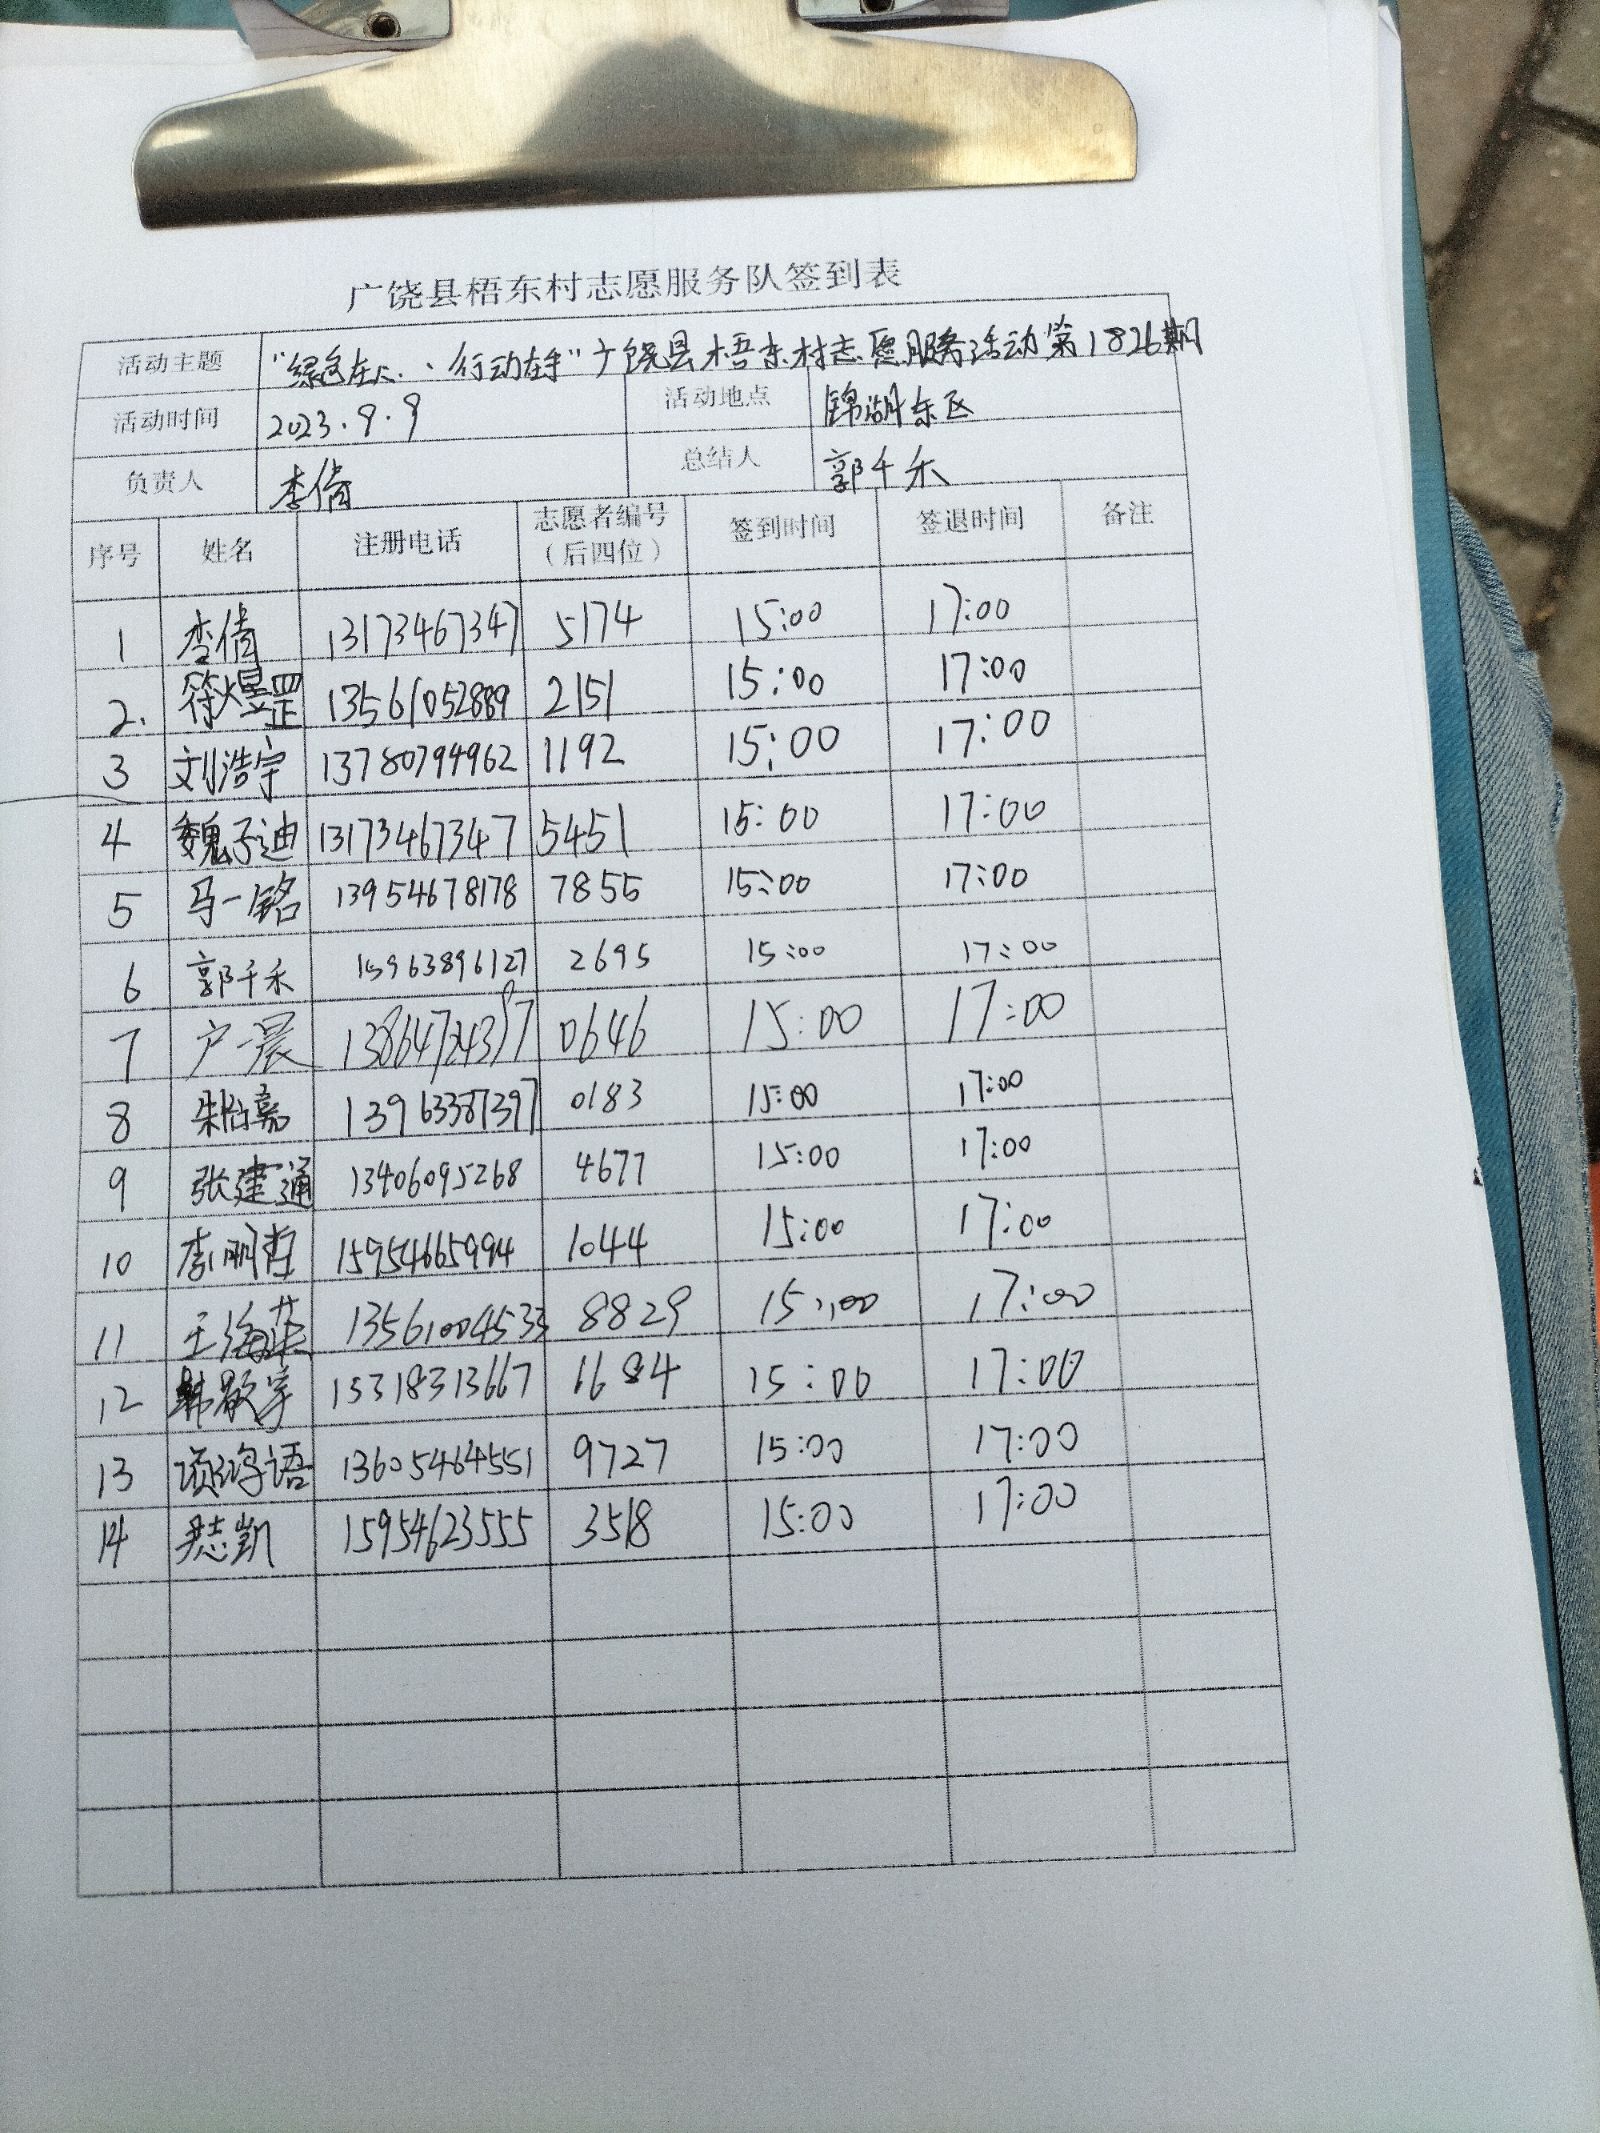 广饶县梧东村志愿服务队签到表
活动主题 "绿色在心、行动在手"广饶县梧东村志愿服务活动第1826期
活动时间 2023.9.9 活动地点 锦湖东区
负责人 李倩 总结人 郭千禾
序号 姓名 注册电话 志愿者编号（后四位） 签到时间 签退时间 备注
1 李倩 13173467347 5174 15:00 17:00
2. 符煜罡 13561052889 2151 15:00 17:00
3 刘浩宇 13780794962 1192 15:00 17:00
4 魏子迪 13173467347 5451 15:00 17:00
5 马一铭 13954678178 7855 15:00 17:00
6 郭千禾 15963896127 2695 15:00 17:00
7 户一晨 13864724397 0646 15:00 17:00
8 朱怡嘉 13963387397 0183 15:00 17:00
9 张建通 13406095268 4677 15:00 17:00
10 李明哲 15954665994 1044 15:00 17:00
11 王海英 13561004533 8829 15:00 17:00
12 韩歆宇 15318313667 6684 15:00 17:00
13 项鸿语 13605464551 9727 15:00 17:00
14 尹志凯 15954623555 3518 15:00 17:00